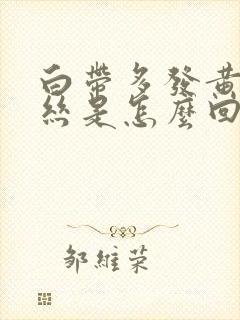 白帶多發黃
絲是怎麼回
鄒維榮